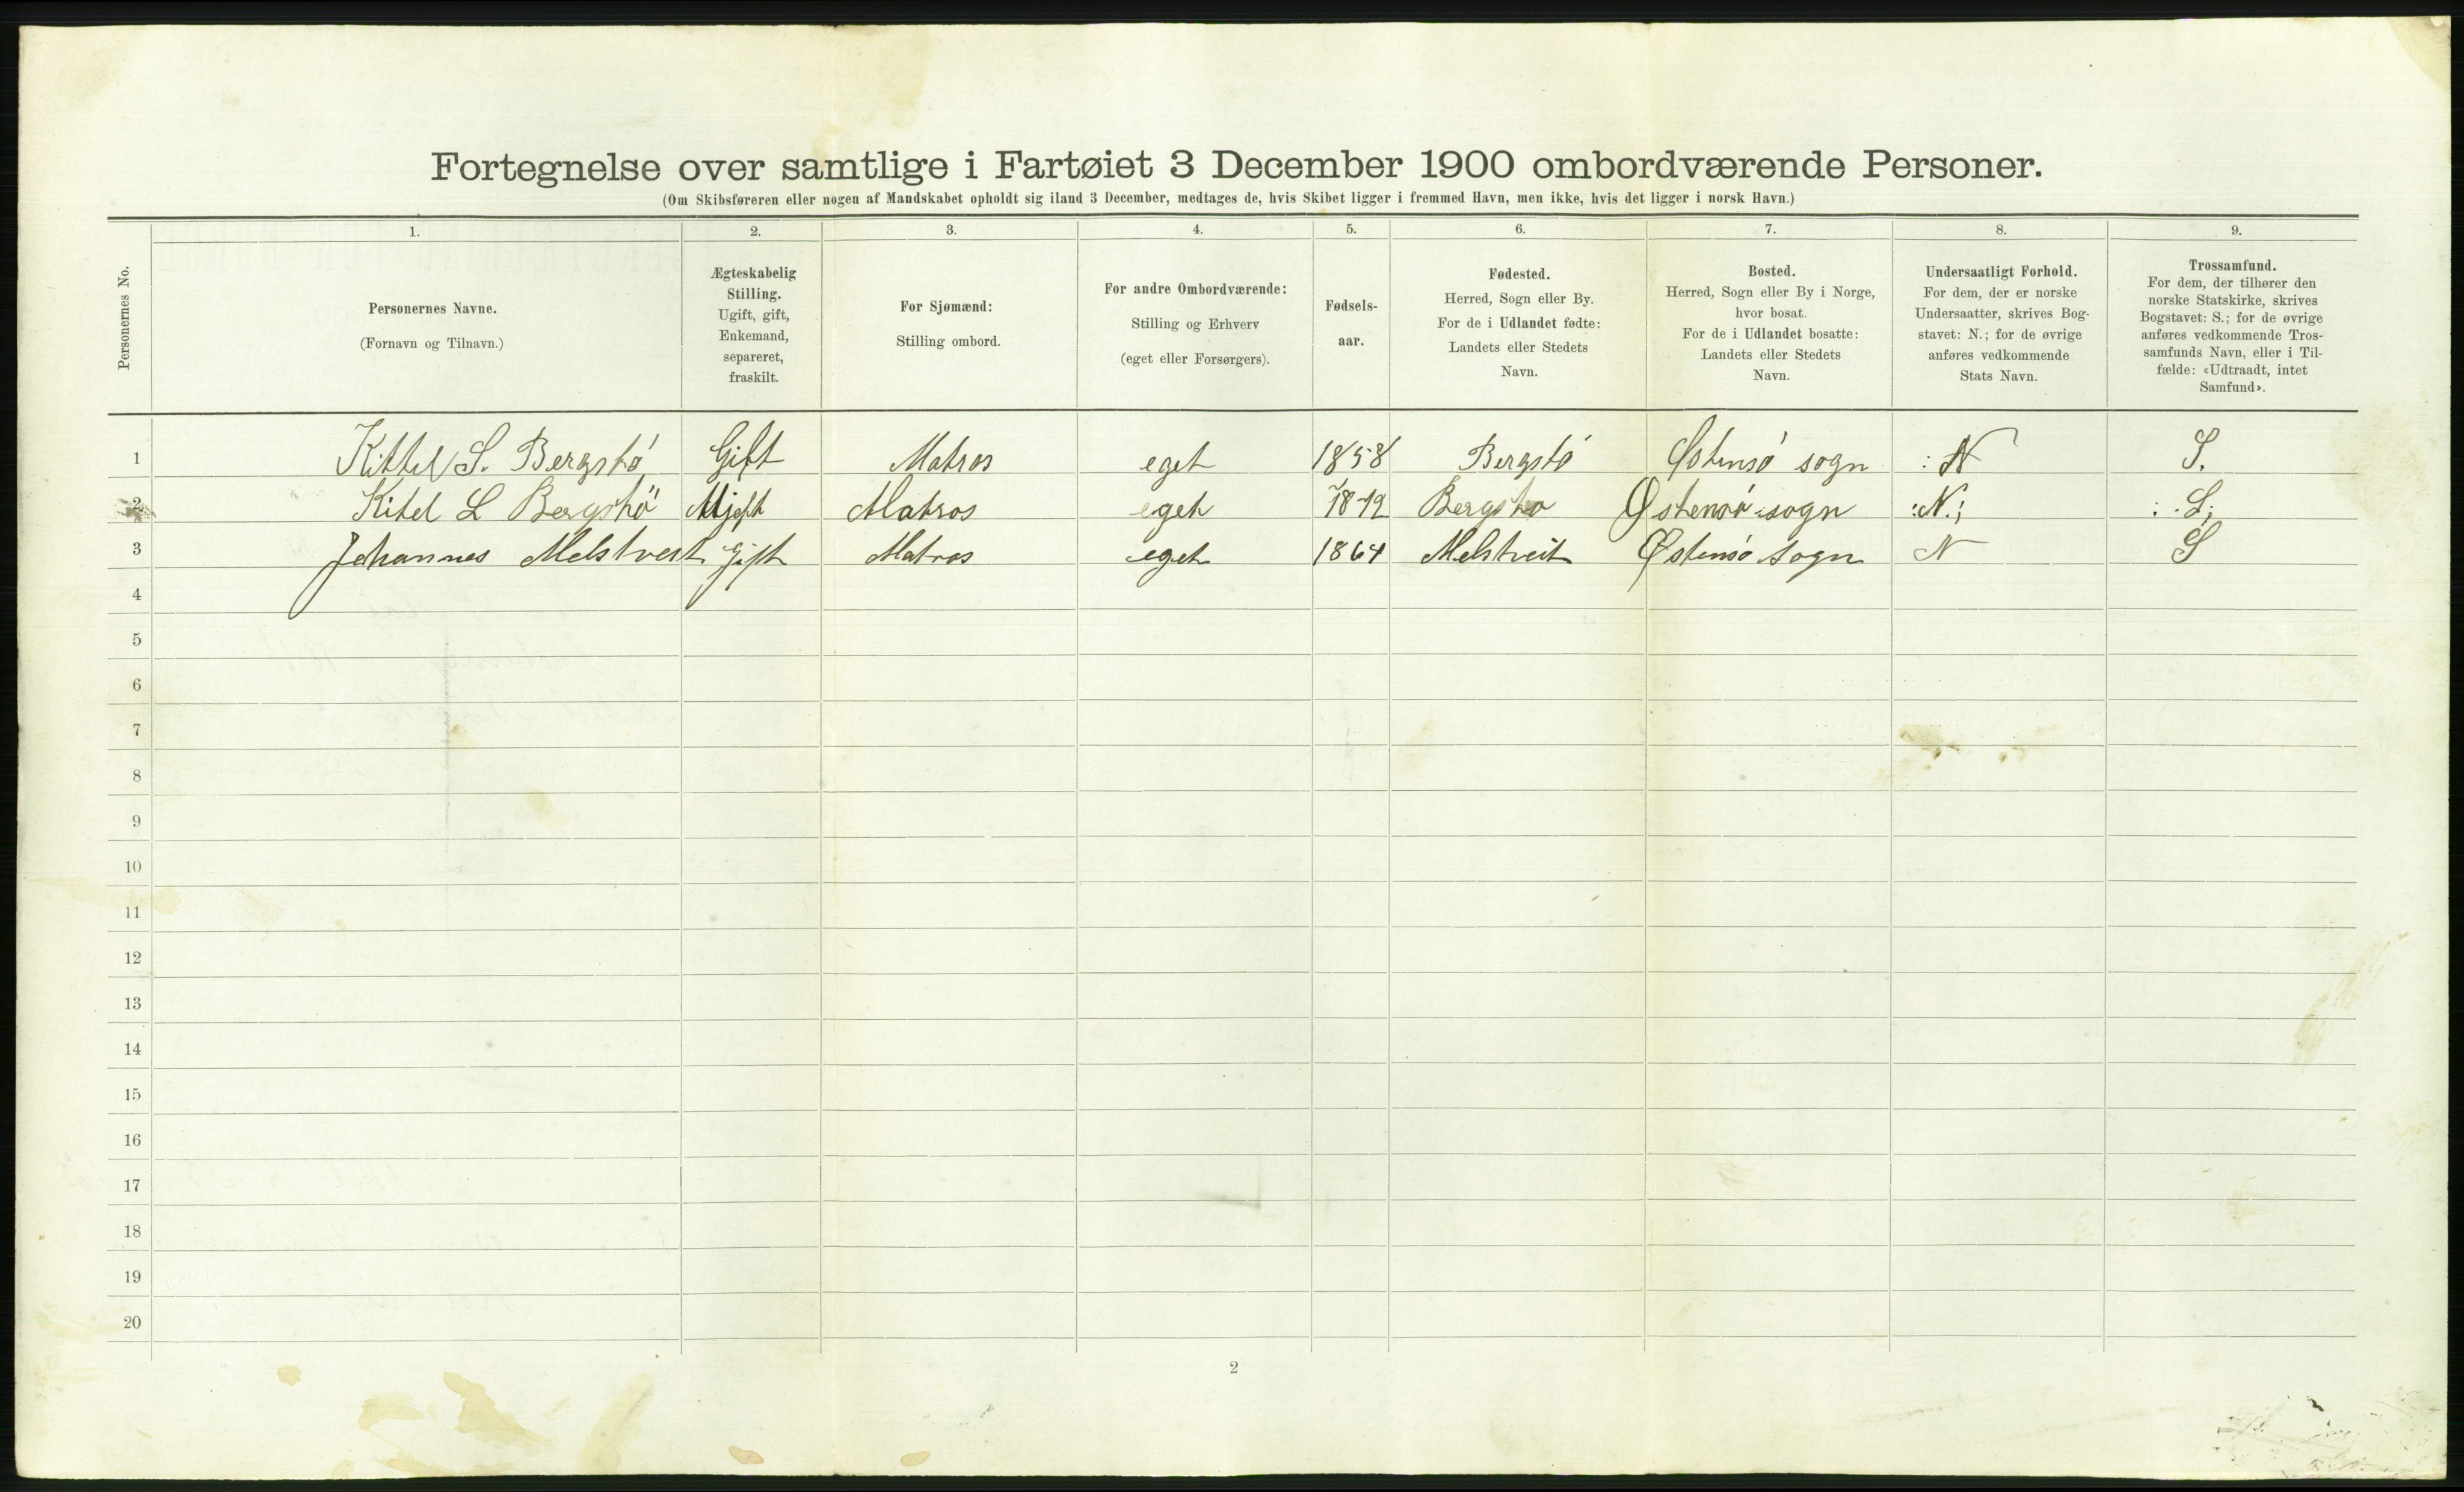 Fortegnelse over samtlige i Fartøiet 3 December 1900 ombordværende Personer.
(Om Skibsføreren eller nogen af Mandskabet opholdt sig iland 3 December, medtages de, hvis Skibet ligger i fremmed Havn, men ikke, hvis det ligger i norsk Havn.)
Personernes No.
1.
Personernes Navne.
(Fornavn og Tilnavn.)
2.
Ægteskabelig
Stilling.
Ugift, gift,
Enkemand,
separeret,
fraskilt.
3.
For Sjømænd:
Stilling ombord.
4.
For andre Ombordværende:
Stilling og Erhverv
(eget eller Forsørgers).
5.
Fødsels-
aar.
6.
Fødested.
Herred, Sogn eller By.
For de i Udlandet fødte:
Landets eller Stedets
Navn.
7.
Bosted.
Herred, Sogn eller By i Norge,
hvor bosat.
For de i Udlandet bosatte:
Landets eller Stedets
Navn.
8.
Undersaatligt Forhold.
For dem, der er norske
Undersaatter, skrives Bog-
stavet: N.; for de øvrige
anføres vedkommende
Stats Navn.
9.
Trossamfund.
For dem, der tilhører den
norske Statskirke, skrives
Bogstavet: S.; for de øvrige
anføres vedkommende Tros-
samfunds Navn, eller i Til-
fælde: «Udtraadt, intet
Samfund».
1 Kittel S. Bergstö Gift Matros eget 1858 Bergstö Östensö sogn : N S.
2 Kitel L Bergstö Matros eget Bergsto Østensö sogn :N.; : S;
3 Johannes Melstveit Gift Matros eget 1864 Melstveit Østensö sogn N S
4
5
6
7
8
9
10
11
12
13
14
15
16
17
18
19
20
2